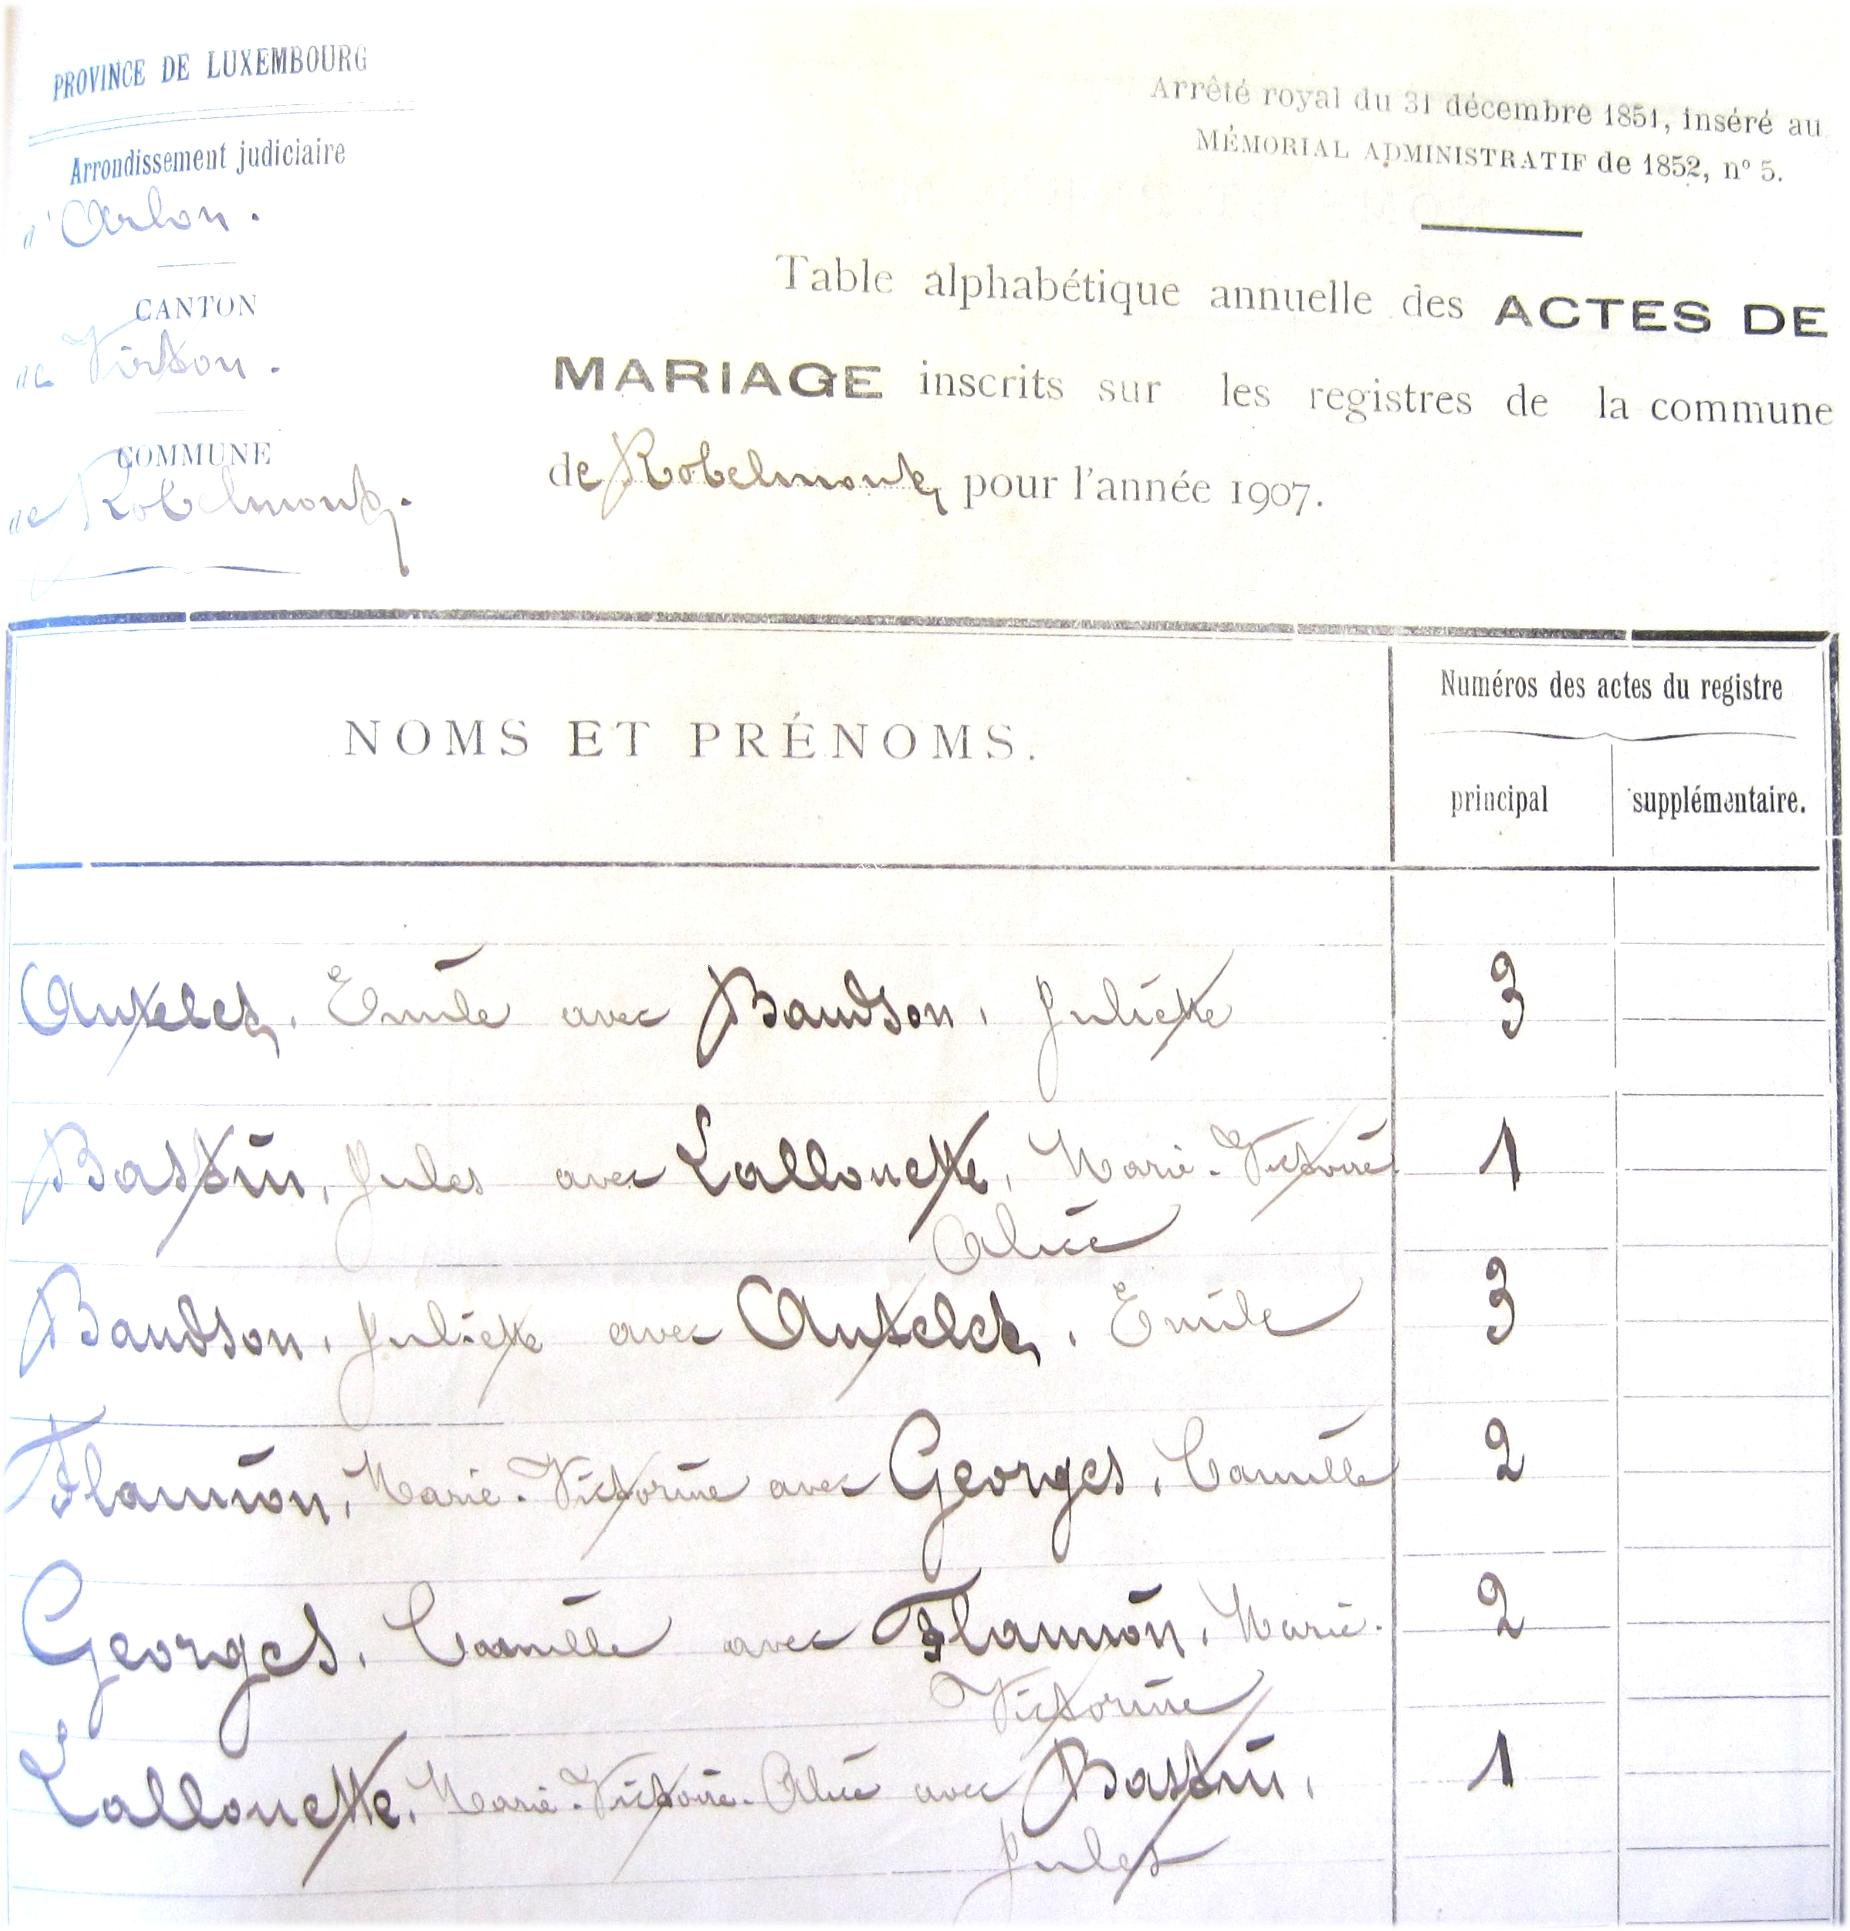 PROVINCE DE LUXEMBOURG
Arrondissement judiciaire
d'Arlon.
CANTON
de Virton.
COMMUNE
de Robelmont.
Arrêté royal du 31 décembre 1851, inséré au
MÉMORIAL ADMINISTRATIF de 1852, n° 5.
Table alphabétique annuelle des ACTES DE
MARIAGE inscrits sur les registres de la commune
de Robelmont pour l'année 1907.
NOMS ET PRÉNOMS.
Numéros des actes du registre
principal
supplémentaire.
Emile avec Baudson, Juliette 3
Bastin, Jules avec Lallouette, Marie-Victoire 1
Alice
Baudson, Juliette avec Emile 3
Flamion, Marie-Victorine avec Georges, Camille 2
Georges, Camille avec Flamion, Marie-
Victorine 2
Lallouette, Marie-Victoire-Alice avec Bastin, 1
Jules